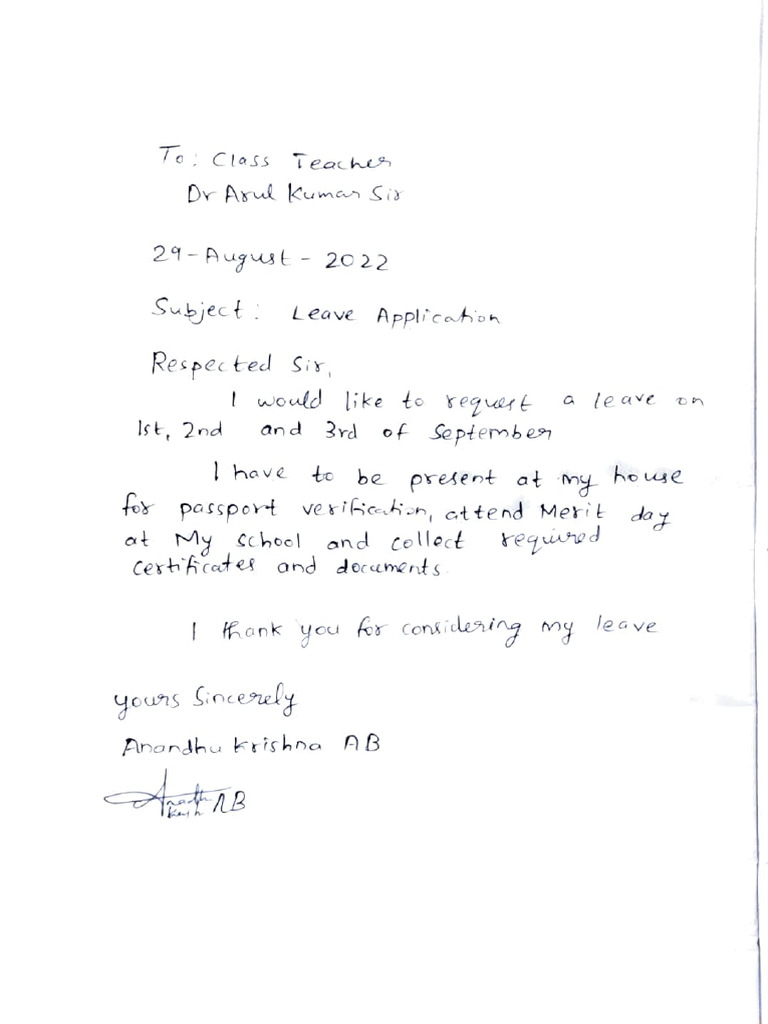 To: Class Teacher
Dr Arul Kumar Sir
29-August-2022
Subject: Leave Application
Respected Sir,
I would like to request a leave on
1st, 2nd and 3rd of September
I have to be present at my house
for passport verification, attend Merit day
at My school and collect required
certificates and documents.
I thank you for considering my leave
yours Sincerely
Anandhu Krishna AB
AB